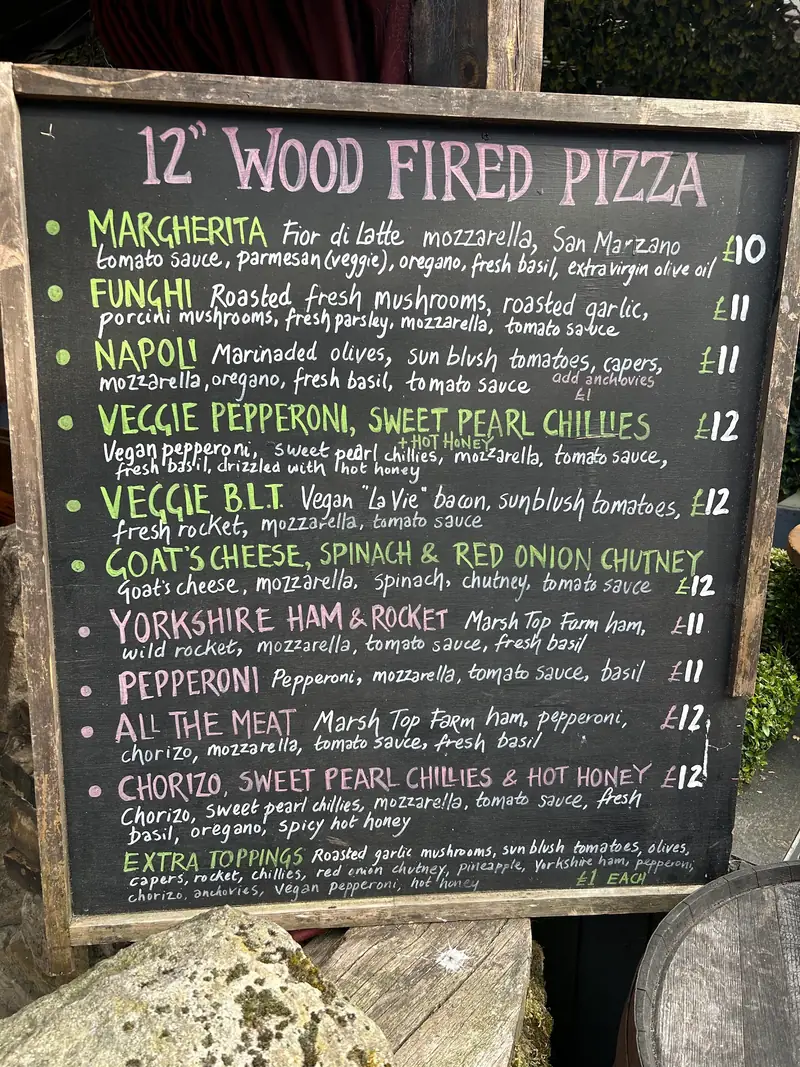 12" WOOD FIRED PIZZA
MARGHERITA Fior di Latte mozzarella, San Marzano £10
tomato sauce, parmesan (veggie), oregano, fresh basil, extra virgin olive oil
FUNGHI Roasted fresh mushrooms, roasted garlic, £11
porcini mushrooms, fresh parsley, mozzarella, tomato sauce
NAPOLI Marinaded olives, sun blush tomatoes, capers, £11
mozzarella, oregano, fresh basil, tomato sauce add anchovies
£1
VEGGIE PEPPERONI, SWEET PEARL CHILLIES £12
+ HOT HONEY
Vegan pepperoni, sweet pearl chillies, mozzarella, tomato sauce,
fresh basil, drizzled with hot honey
VEGGIE B.L.T. Vegan "La Vie" bacon, sunblush tomatoes, £12
fresh rocket, mozzarella, tomato sauce
GOAT'S CHEESE, SPINACH & RED ONION CHUTNEY
Goat's cheese, mozzarella, spinach, chutney, tomato sauce £12
YORKSHIRE HAM & ROCKET Marsh Top Farm ham, £11
wild rocket, mozzarella, tomato sauce, fresh basil
PEPPERONI Pepperoni, mozzarella, tomato sauce, basil £11
ALL THE MEAT Marsh Top Farm ham, pepperoni, £12
chorizo, mozzarella, tomato sauce, fresh basil
CHORIZO, SWEET PEARL CHILLIES & HOT HONEY £12
Chorizo, sweet pearl chillies, mozzarella, tomato sauce, fresh
basil, oregano, spicy hot honey
EXTRA TOPPINGS Roasted garlic mushrooms, sun blush tomatoes, olives,
capers, rocket, chillies, red onion chutney, pineapple, Yorkshire ham, pepperoni,
chorizo, anchovies, vegan pepperoni, hot honey £1 EACH